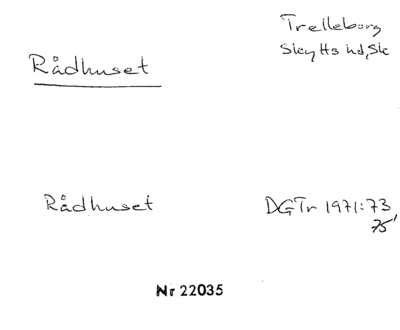 Trelleborg
Skytts hd, Sk
Rådhuset
Rådhuset
DGTr 1971:73
75'
Nr 22035